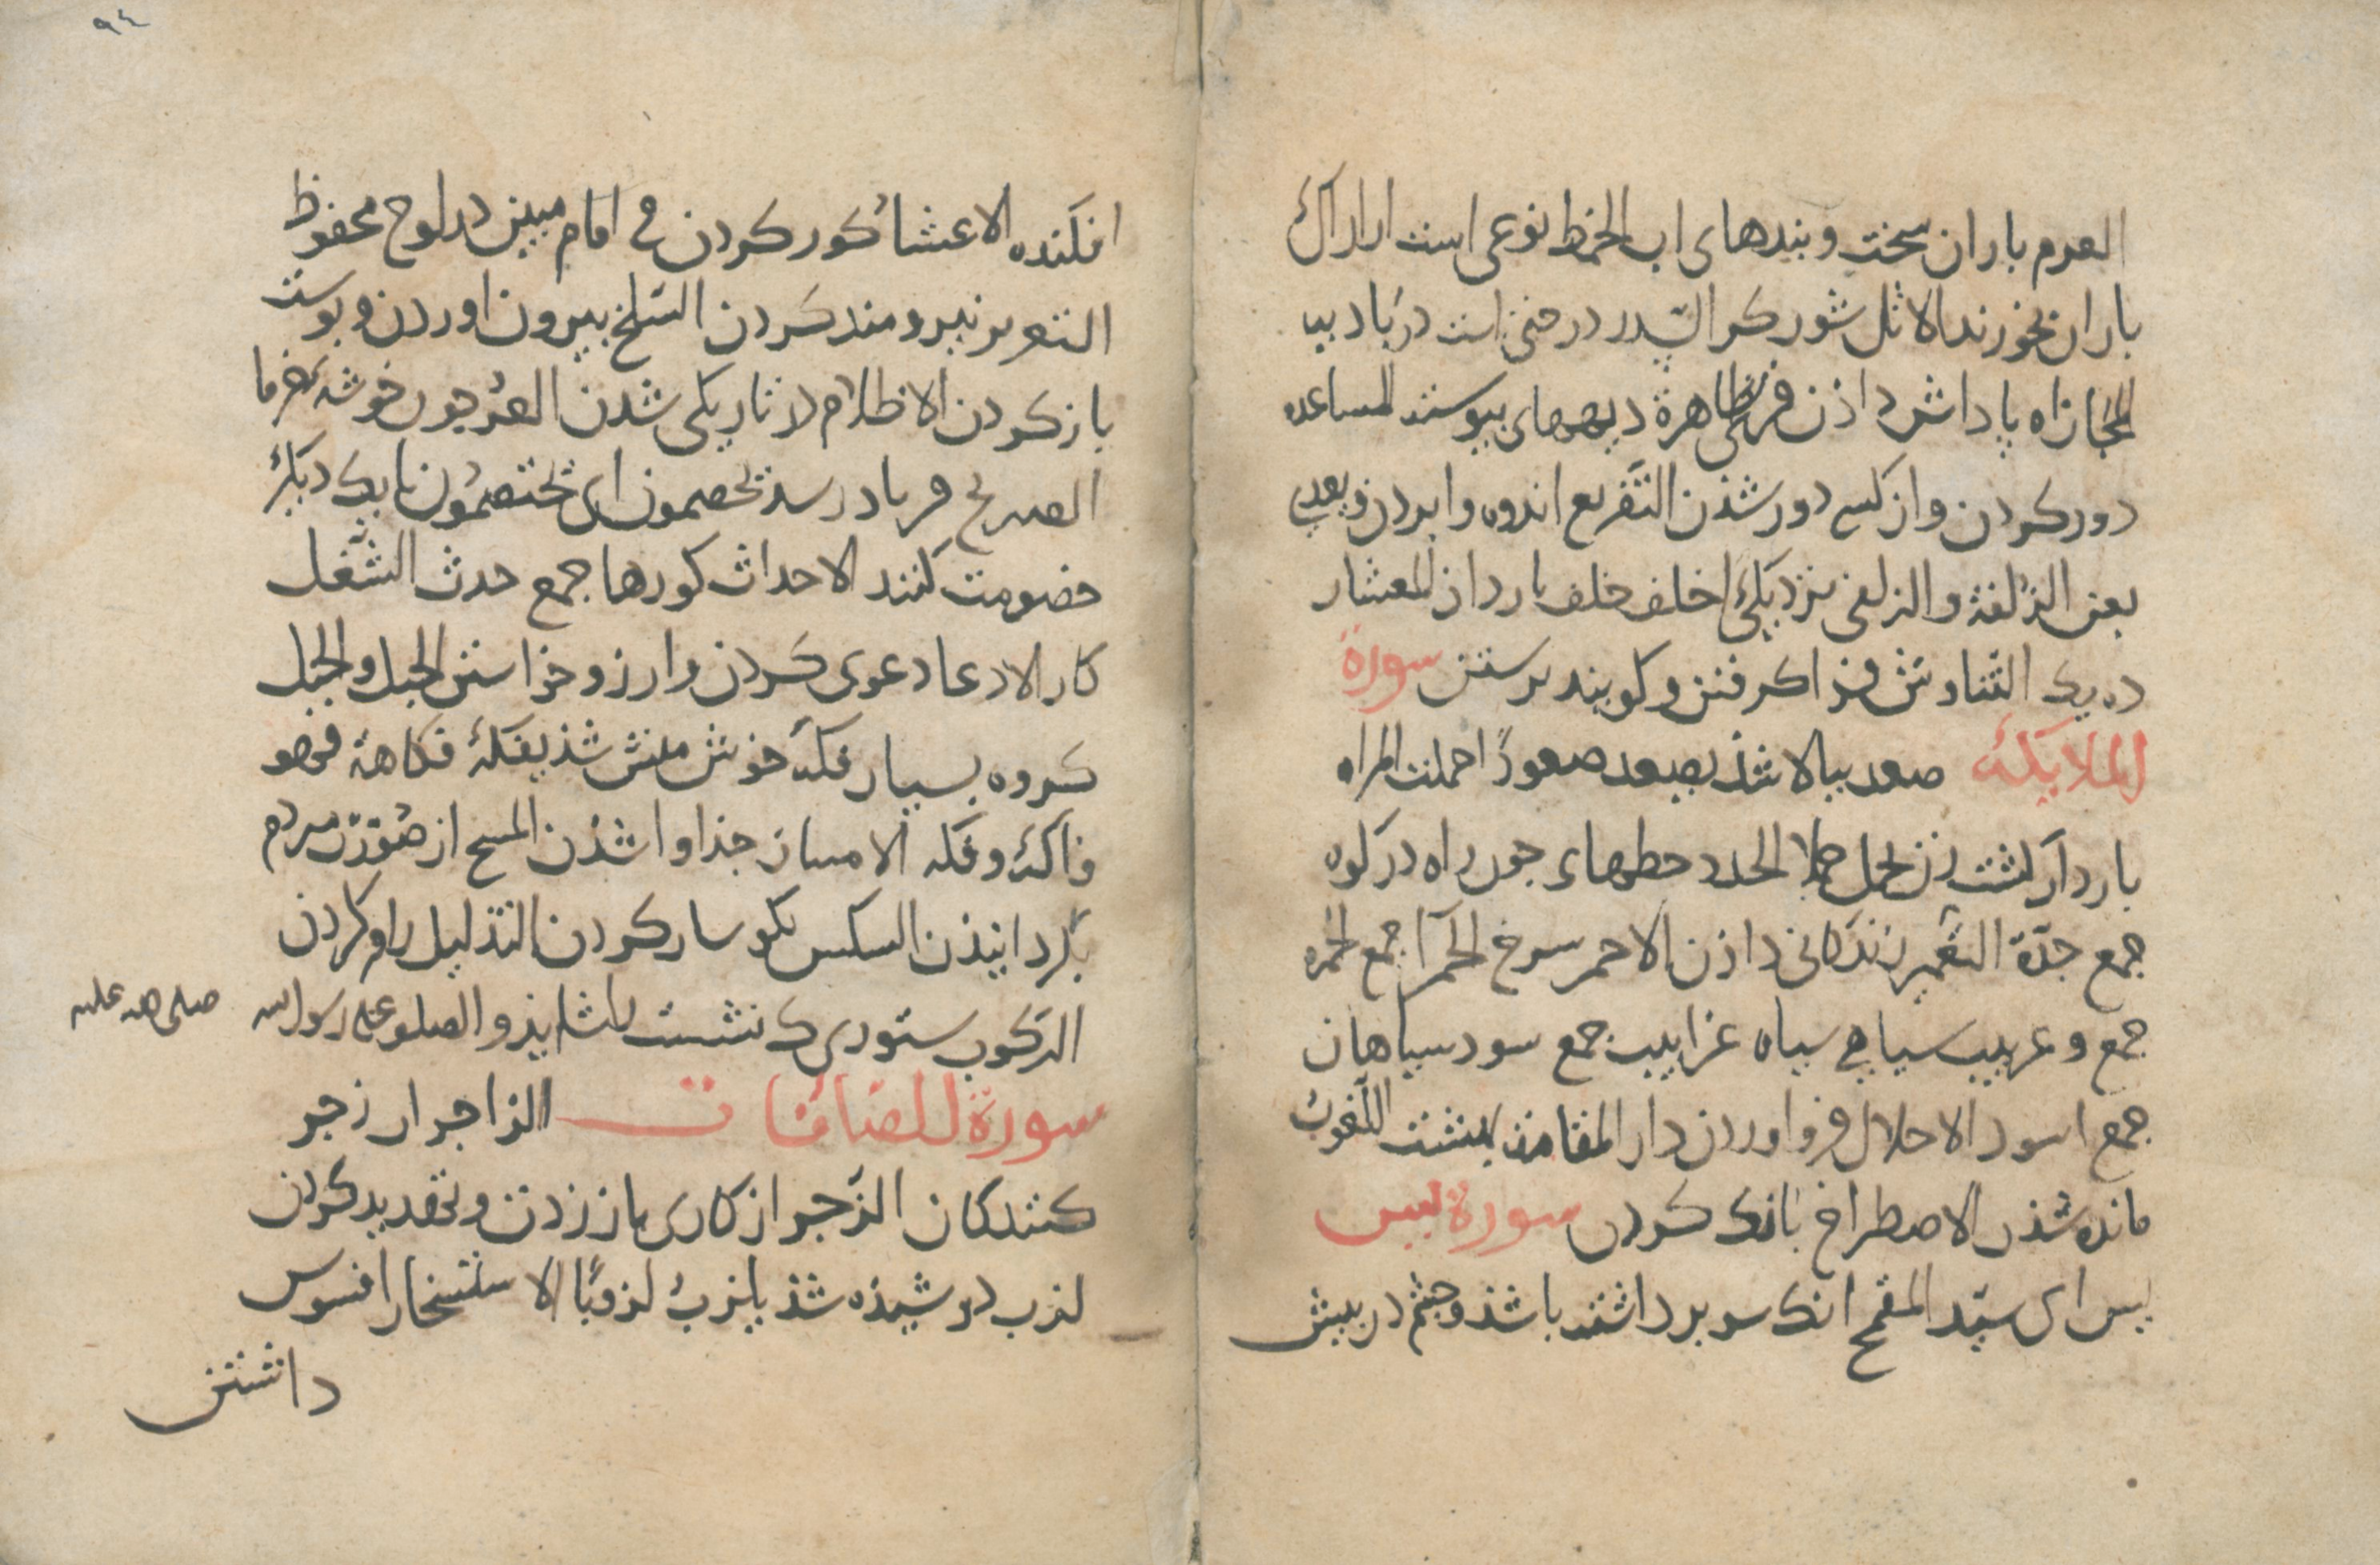 العرم باران سخت وبندهای اب الخمط نوعی است از اراک
باران بخورند الاثل شورکز السدر درختی است در بادیه
المجازاه پاداش داذن قری ظاهرة دیههای پیوسته المباعده
دور کردن واز کسی دور شذن التفریع اندوه وابردن
یعنی الزلفة والزلفی نزدیکی اخلف خلف بازداذ المعشار
ده یک التناوش فرا گرفتن وکویند برستن سورة
الملایکة صعد ببالا شذ یصعد صعودًا حملت المراه
باردار کشت زن تحمل حملا الجدد خطهای جون راه در کوه
جمع جدّة التعمیر زندگانی داذن الاحمر سرخ الحمر جمع الحمرة
جمع و غربیب سیاهی سیاه غرابیب جمع سود سیاهان
جمع اسود الاحلال فرو اوردن دار المقامة بهشت اللغوب
مانده شذن الاصطراخ بانک کردن سورة یس
یس ای سیّد المقمح انک سر برداشته باشذ وجشم در پیش
۹۴
افکنده الاعشاء کور کردن فی امام مبین در لوح محفوظ
التعزیز نیرومند کردن السلخ بیرون اوردن وپوست
باز کردن الاظلام در تاریکی شدن العرجون خوشه خرما
الصریخ فریاد رسنده یخصمون ای یختصمون با یک دیکر
خصومت کنند الاجداث کورها جمع جدث الشغل
کار الادعا دعوی کردن وارزو خواستن الجبل والجبل
کروه بسیار فکه خوش منش شذ یفکه فکاهة فهو
فاکه وفکه الامتیاز جذا وا شذن المسخ از صورت مردم
بکردانیذن النکس نکوسار کردن التذلیل رام کردن
الرکوب ستوری که نشست را شایذ والصلوة علی رسول الله
صلی الله علیه
سورة الصافات الزاجرات زجر
کنندکان الزجر از کاری باز زدن وتهدید کردن
لزب دوشیذه شذ یلزب لزوبًا الاستسخار افسوس
داشتن